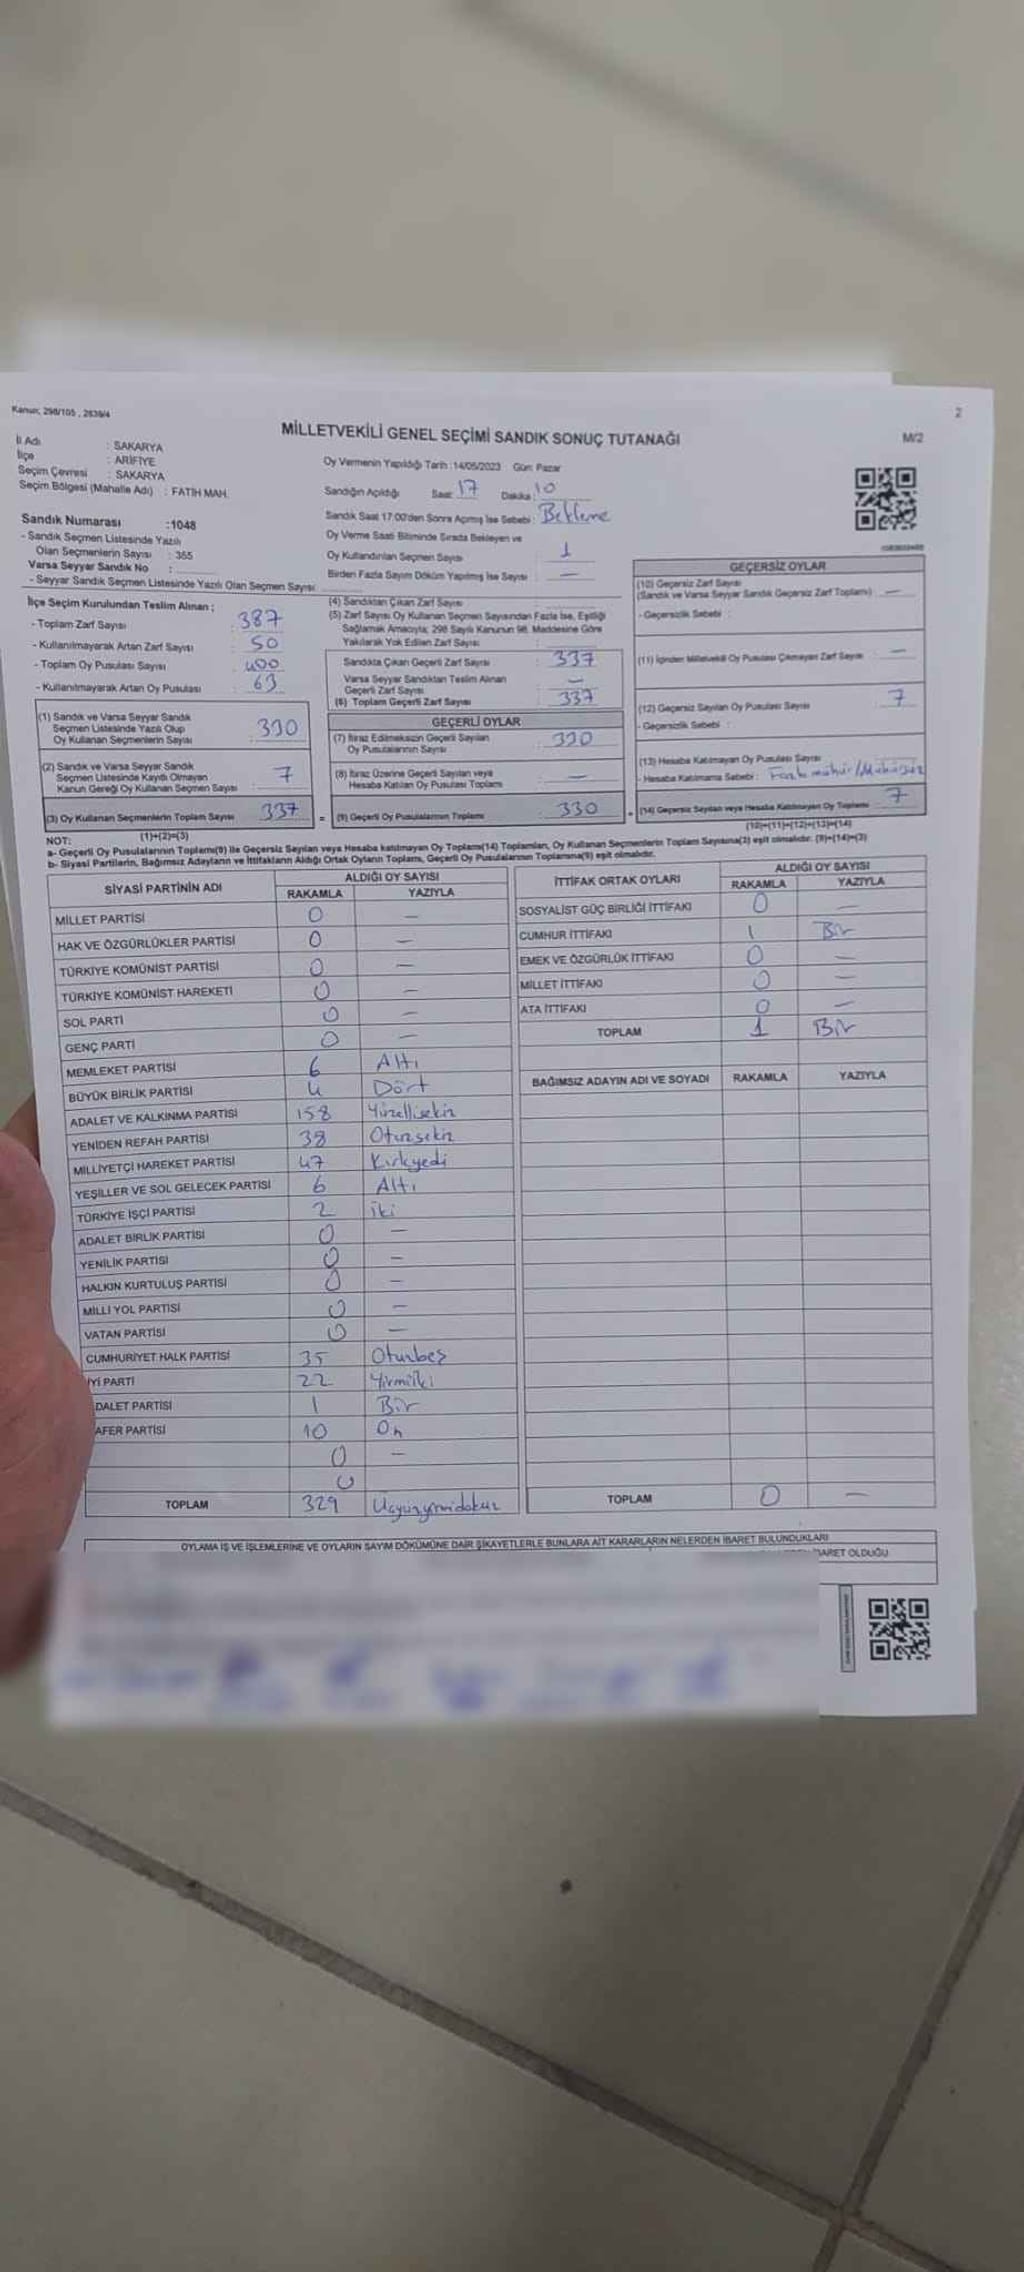 Kanun, 298/105 , 2839/4
2
MİLLETVEKİLİ GENEL SEÇİMİ SANDIK SONUÇ TUTANAĞI
M/2
İl Adı : SAKARYA
İlçe : ARİFİYE
Seçim Çevresi : SAKARYA
Seçim Bölgesi (Mahalle Adı) : FATİH MAH.
Sandık Numarası :1048
- Sandık Seçmen Listesinde Yazılı
Olan Seçmenlerin Sayısı : 355
Varsa Seyyar Sandık No :
- Seyyar Sandık Seçmen Listesinde Yazılı Olan Seçmen Sayısı
Oy Vermenin Yapıldığı Tarih :14/05/2023 Gün: Pazar
Sandığın Açıldığı Saat: 17 Dakika: 10
Sandık Saat 17:00'den Sonra Açımış İse Sebebi: Bekleme
Oy Verme Saati Bitiminde Sırada Bekleyen ve
Oy Kullandırılan Seçmen Sayısı : 1
Birden Fazla Sayım Döküm Yapılmış İse Sayısı : —
İlçe Seçim Kurulundan Teslim Alınan ;
- Toplam Zarf Sayısı : 387
- Kullanılmayarak Artan Zarf Sayısı : 50
- Toplam Oy Pusulası Sayısı : 400
- Kullanılmayarak Artan Oy Pusulası : 63
(1) Sandık ve Varsa Seyyar Sandık
Seçmen Listesinde Yazılı Olup
Oy Kullanan Seçmenlerin Sayısı : 330
(2) Sandık ve Varsa Seyyar Sandık
Seçmen Listesinde Kayıtlı Olmayan
Kanun Gereği Oy Kullanan Seçmen Sayısı : 7
(3) Oy Kullanan Seçmenlerin Toplam Sayısı 337
(1)+(2)=(3)
(4) Sandıktan Çıkan Zarf Sayısı
(5) Zarf Sayısı Oy Kullanan Seçmen Sayısından Fazla İse, Eşitliği
Sağlamak Amacıyla; 298 Sayılı Kanunun 98. Maddesine Göre
Yakılarak Yok Edilen Zarf Sayısı :
Sandıkta Çıkan Geçerli Zarf Sayısı : 337
Varsa Seyyar Sandıktan Teslim Alınan
Geçerli Zarf Sayısı : —
(6) Toplam Geçerli Zarf Sayısı : 337
GEÇERLİ OYLAR
(7) İtiraz Edilmeksizin Geçerli Sayılan
Oy Pusulalarının Sayısı : 330
(8) İtiraz Üzerine Geçerli Sayılan veya
Hesaba Katılan Oy Pusulası Toplamı : —
= (9) Geçerli Oy Pusulalarının Toplamı : 330
GEÇERSİZ OYLAR
(10) Geçersiz Zarf Sayısı
(Sandık ve Varsa Seyyar Sandık Geçersiz Zarf Toplamı) : —
- Geçersizlik Sebebi :
(11) İçinden Milletvekili Oy Pusulası Çıkmayan Zarf Sayısı : —
(12) Geçersiz Sayılan Oy Pusulası Sayısı : 7
- Geçersizlik Sebebi :
(13) Hesaba Katılmayan Oy Pusulası Sayısı
- Hesaba Katılmama Sebebi : Fazla mühür/Mühürsüz
+ (14) Geçersiz Sayılan veya Hesaba Katılmayan Oy Toplamı 7
(10)+(11)+(12)+(13)=(14)
NOT:
a- Geçerli Oy Pusulalarının Toplamı(9) ile Geçersiz Sayılan veya Hesaba katılmayan Oy Toplamı(14) Toplamları, Oy Kullanan Seçmenlerin Toplam Sayısına(3) eşit olmalıdır. (9)+(14)=(3)
b- Siyasi Partilerin, Bağımsız Adayların ve İttifakların Aldığı Ortak Oyların Toplamı, Geçerli Oy Pusulalarının Toplamına(9) eşit olmalıdır.
SİYASİ PARTİNİN ADI ALDIĞI OY SAYISI
RAKAMLA YAZIYLA
MİLLET PARTİSİ 0 —
HAK VE ÖZGÜRLÜKLER PARTİSİ 0 —
TÜRKİYE KOMÜNİST PARTİSİ 0 —
TÜRKİYE KOMÜNİST HAREKETİ 0 —
SOL PARTİ 0 —
GENÇ PARTİ 0 —
MEMLEKET PARTİSİ 6 Altı
BÜYÜK BİRLİK PARTİSİ 4 Dört
ADALET VE KALKINMA PARTİSİ 158 Yüzellisekiz
YENİDEN REFAH PARTİSİ 38 Otuzsekiz
MİLLİYETÇİ HAREKET PARTİSİ 47 Kırkyedi
YEŞİLLER VE SOL GELECEK PARTİSİ 6 Altı
TÜRKİYE İŞÇİ PARTİSİ 2 iki
ADALET BİRLİK PARTİSİ 0 —
YENİLİK PARTİSİ 0 —
HALKIN KURTULUŞ PARTİSİ 0 —
MİLLİ YOL PARTİSİ 0 —
VATAN PARTİSİ 0 —
CUMHURİYET HALK PARTİSİ 35 Otuzbeş
İYİ PARTİ 22 Yirmiiki
DALET PARTİSİ 1 Bir
AFER PARTİSİ 10 On
0 —
0
TOPLAM 329 Üçyüzyirmidokuz
İTTİFAK ORTAK OYLARI ALDIĞI OY SAYISI
RAKAMLA YAZIYLA
SOSYALİST GÜÇ BİRLİĞİ İTTİFAKI 0 —
CUMHUR İTTİFAKI 1 Bir
EMEK VE ÖZGÜRLÜK İTTİFAKI 0 —
MİLLET İTTİFAKI 0 —
ATA İTTİFAKI 0 —
TOPLAM 1 Bir
BAĞIMSIZ ADAYIN ADI VE SOYADI RAKAMLA YAZIYLA
TOPLAM 0 —
OYLAMA İŞ VE İŞLEMLERİNE VE OYLARIN SAYIM DÖKÜMÜNE DAİR ŞİKAYETLERLE BUNLARA AİT KARARLARIN NELERDEN İBARET BULUNDUKLARI
BARET OLDUĞU